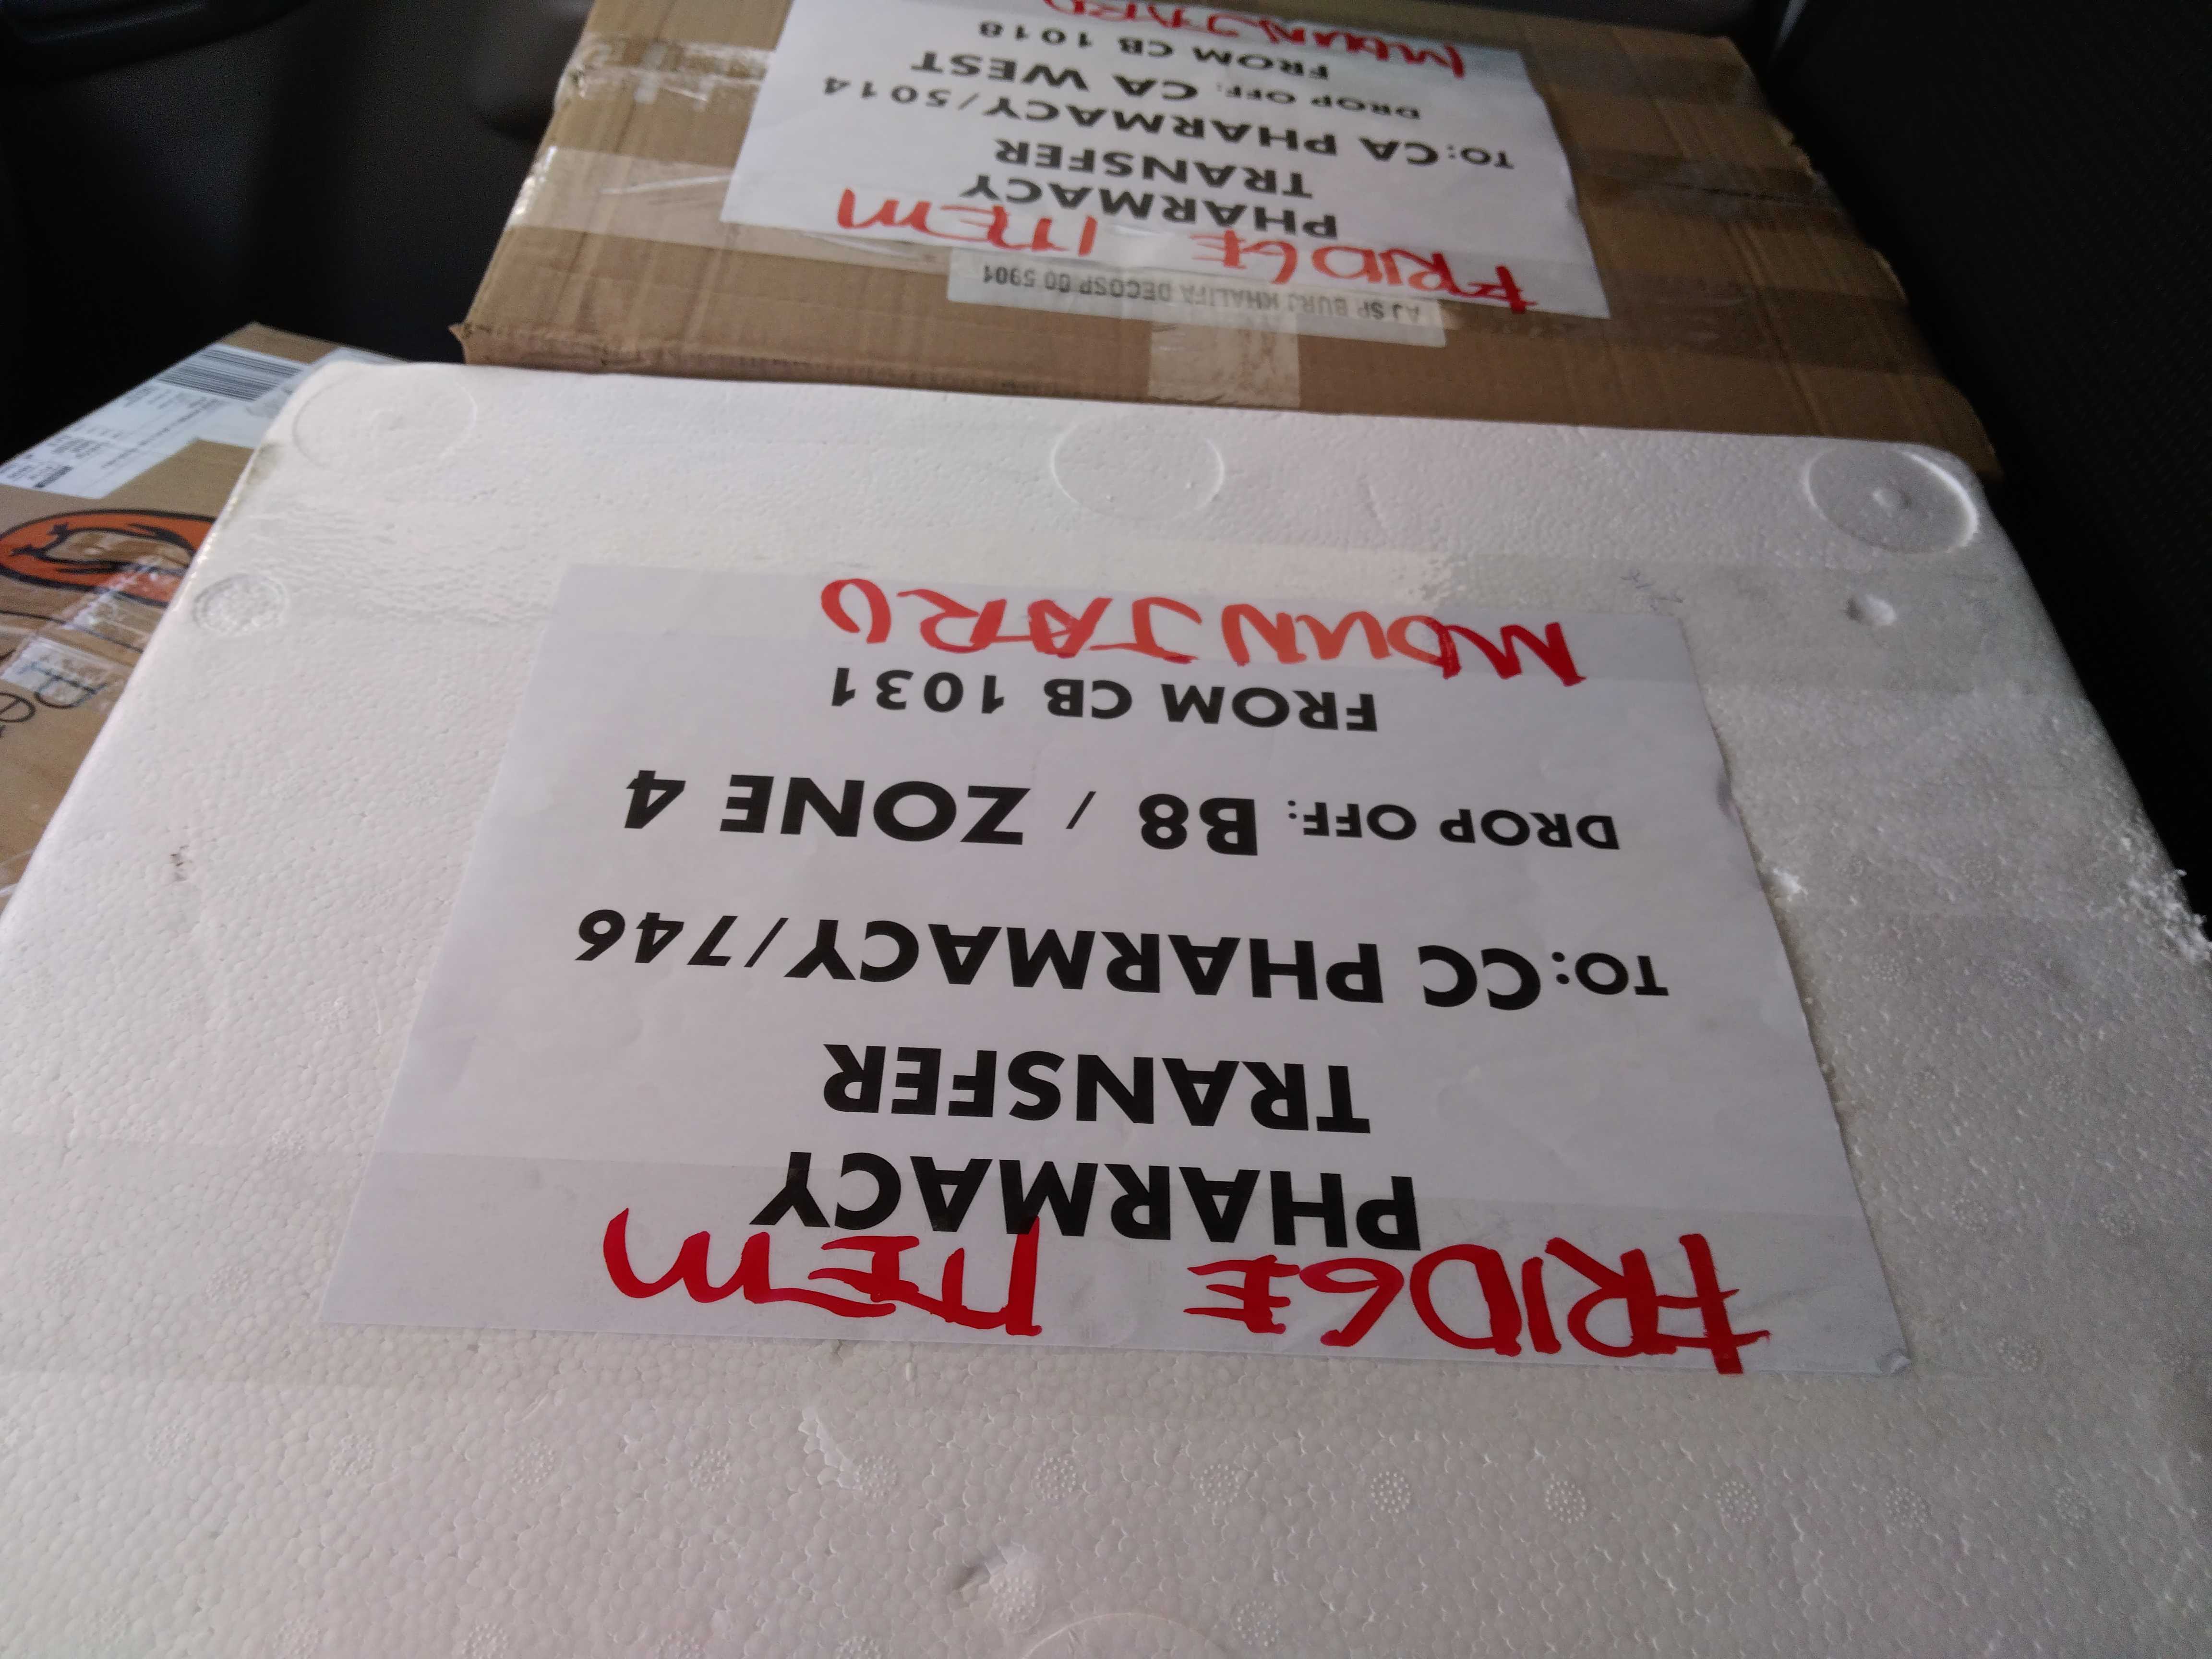 FRIDGE ITEM
PHARMACY
TRANSFER
TO:CC PHARMACY/746
DROP OFF: B8 / ZONE 4
FROM CB 1031
MOUNJARO
AJ SP BURJ KHALIFA DECOSP 00 5901
FRIDGE ITEM
PHARMACY
TRANSFER
TO:CA PHARMACY/5014
DROP OFF: CA WEST
FROM CB 1018
MOUNJARO